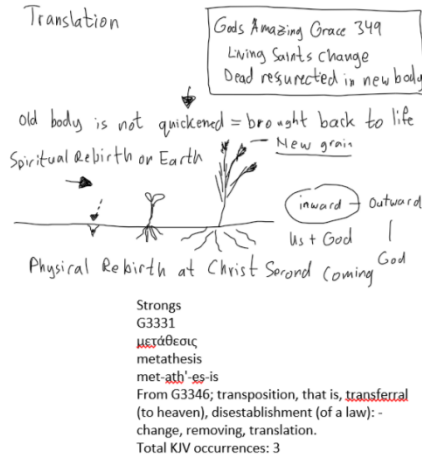 Translation
Gods Amazing Grace 349
Living Saints change
Dead resurected in new body
Old body is not quickened = brought back to life
Spiritual Rebirth on Earth
New grain
inward – Outward
Us + God
God
Physical Rebirth at Christ Second Coming
Strongs
G3331
μετάθεσις
metathesis
met-ath'-es-is
From G3346; transposition, that is, transferral
(to heaven), disestablishment (of a law): -
change, removing, translation.
Total KJV occurrences: 3